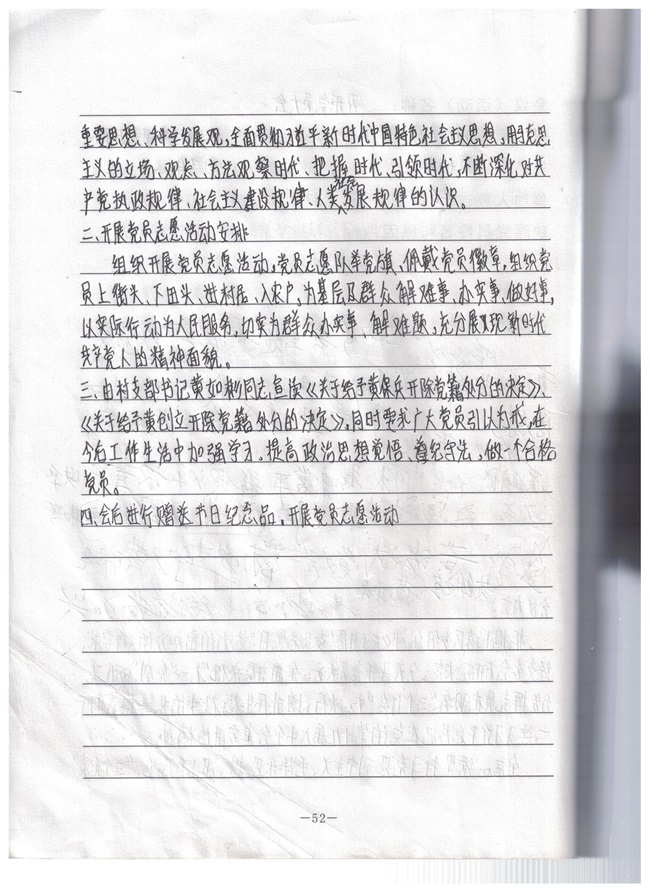 重要思想、科学发展观,全面贯彻习近平新时代中国特色社会主义思想,用马克思
主义的立场、观点、方法观察时代、把握时代、引领时代,不断深化对共
产党执政规律、社会主义建设规律、人类社会发展规律的认识。
二、开展党员志愿活动安排
组织开展党员志愿活动,党员志愿队举党旗、佩戴党员徽章,组织党
员上街头、下田头、进村居、入农户,为基层及群众解难事、办实事、做好事,
以实际行动为人民服务,切实为群众办实事、解难题,充分展现新时代
共产党人的精神面貌。
三、由村支部书记黄如彬同志宣读《关于给予黄保兵开除党籍处分的决定》、
《关于给予黄创立开除党籍处分的决定》。同时要求广大党员引以为戒,在
今后工作生活中加强学习、提高政治思想觉悟、遵纪守法,做一个合格
党员。
四、会后进行赠送书日纪念品,开展党员志愿活动
—52—